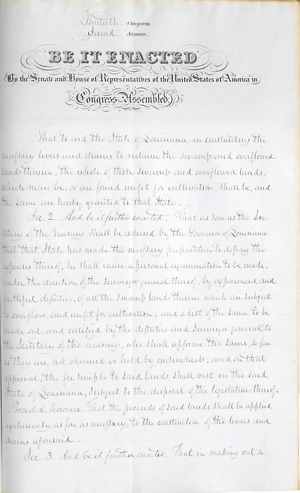 Thirtieth Congress
Second Session,
BE IT ENACTED
By the Senate and House of Representatives of the United States of America in
Congress Assembled,
That to aid the State of Louisiana in constructing the
necessary levees and drains to reclaim the swamp and overflowed
lands therein, the whole of those swamp and overflowed lands,
which may be, or are found unfit for cultivation shall be, and
the same are hereby, granted to that State.
Sec. 2. And be it further enacted, That as soon as the Sec-
retary of the Treasury shall be advised by the Governor of Louisiana
that that State has made the necessary preparation to defray the
expenses thereof, he shall cause a personal examination to be made,
under the direction of the surveyor general thereof, by experienced and
faithful deputies, of all the swamp lands therein which are subject
to overflow, and unfit for cultivation; and a list of the same to be
made out, and certified by the deputies and surveyor general to
the Secretary of the Treasury, who shall approve the same, so far
as they are not claimed or held by individuals; and on that
approval, the fee simple to said lands shall vest in the said
State of Louisiana, subject to the disposal of the legislature thereof:
Provided, however, That the proceeds of said lands shall be applied
exclusively, as far as necessary, to the construction of the levees and
drains aforesaid.
Sec. 3. And be it further enacted, That in making out a